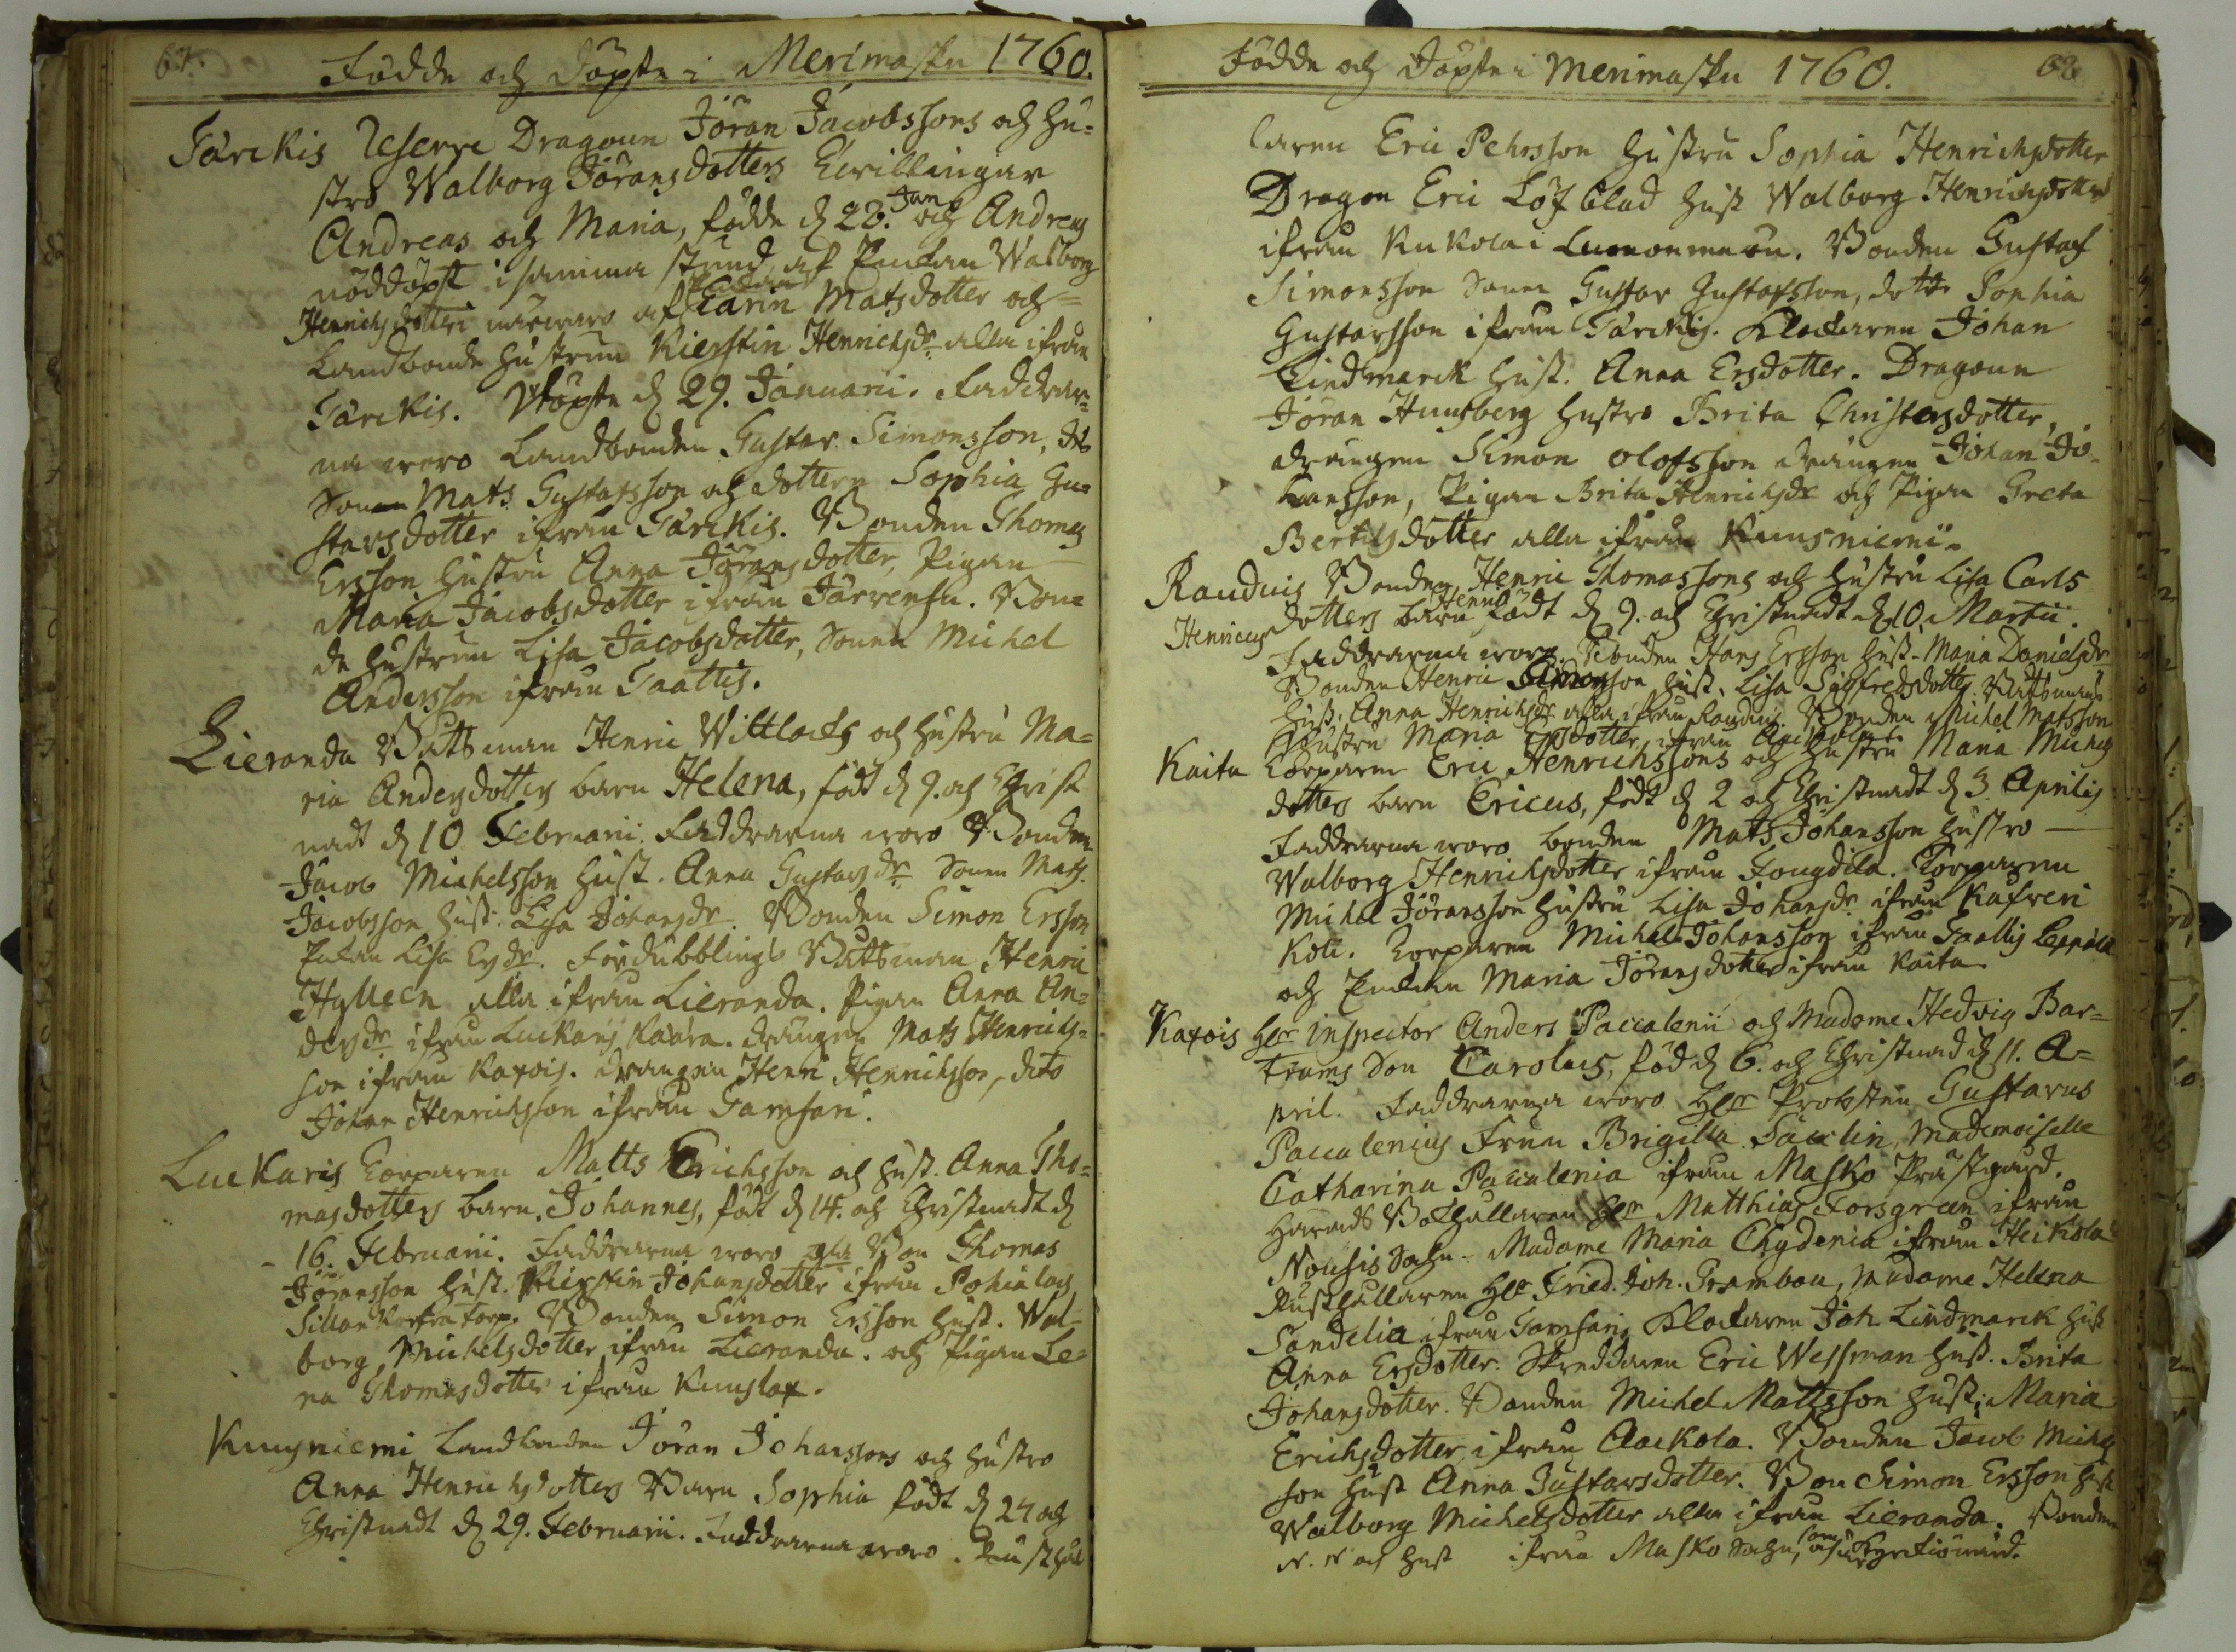 67.
Födde och Döpte i Merimasku 1760.
Tärckis Reserve Dragoun Jöran Jacobssons och hu=
stro Walborg Jöransdotters Twillingar
Jan.
Andreas och Maria, födde d 28. och Andreas
nöddöpt i samma stund, af Enckan Walborg
Henrichsdotter i närwaro af Enckan Carin Matsdotter och
Landbonde hustrun Kierstin Henrichsdr alla ifrån
Tärckis. Döpte d 29. Januarii. Faddrar=
na woro Landbonden Gustav Simonsson, dt
Sonen Mats Gustafsson och dottern Sophia Gu=
stavsdotter ifrån Tärckis. Bonden Thomas
Ersson hustru Anna Jöransdotter, Pigan
Maria Jacobsdotter ifrån Järvensu. Bon=
de hustrun Lisa Jacobsdotter, Sonen Michel
Andersson ifrån Taattis.
Lieranda Båttsman Henric Wittlocks och hustru Ma=
ria Andersdotters barn Helena, födt d 9. och Christ
nadt d 10 Februarii. Faddrarna woro Bonden
Jacob Michelsson hust. Anna Gustavsdr Sonen Mats
Jacobsson hust. Lisa Johansdr. Bonden Simon Ersson
Enkan Lisa Ersdr. Fördubblings Båttsman Henric
Hylleen alla ifrån Lieranda. Pigan Anna An=
dersdr ifrån Luckaris Kaara. drängen Mats Henrichs=
son ifrån Kaxois. drängen Henric Henrichsson, dito
Johan Henrichsson ifrån Tamsari.
Luckaris Torparen Matts Erichsson och hust. Anna Tho=
masdotters barn. Johannes, födt d 14. och Christnadt d
16. Februarii. Faddrarna woro gla Bon Thomas
Jöransson hust. Kierstin Johansdotter ifrån Pohia lois
Sillan Korfva torp. Bonden Simon Ersson hust. Wal=
borg Michelsdotter ifrån Lieranda. och Pigan Le=
na Thomasdotter ifrån Kungslax.
Kungniemi Landbonden Jöran Johanssons och hustro
Anna Henrichsdotters Barn Sophia födt d 24 och
Christnadt d 29. Februarii. Faddrarna woro. Rusthål
Födde och Döpte i Merimasku 1760.
68
laren Eric Pehrsson hustru Sophia Henrichsdotter
Dragon Eric Löfblad hust Walborg Henrichsdotter
ifrån Kukola i Lumonmaan. Bonden Gustaf
Simonsson Sonen Gustav Gustafsson, dotter Sophia
Gustavsson ifrån Tärckis. Klockaren Johan
Lindmarck hust. Anna Ersdotter. Dragoun
Jöran Hunsberg hustro Brita Christersdotter,
drängen Simon Olofsson drängen Johan Jo-
hansson, Pigan Brita Henrichsdr och Pigan Greta
Bertilsdotter alla ifrån Kungniemi.
Rauduis Bonden Henric Thomassons och hustru Lisa Carls
Henricus dotters barn Henric födt d 9. och Christnadt d 10 Martii.
Faddrarna woro. Bonden Hans Ersson hust. Maria Danielsdr
Bonden Henric Simonsson hust. Lisa Sigfredsdotter. Båttsmans
hust. Anna Henrichsdr alla ifrån Rauduis. Bonden Michel Matsson
hustru Maria Ersdotter ifrån Aackola.
Kaita Torparen Eric Henrichssons och hustru Maria Michels
dotters barn Ericus, födt d 2 och Christnadt d 3 Aprilis
Faddrarna woro bonden Mats Johansson hustro
Walborg Henrichsdotter ifrån Fougdila. Torparen
Michel Jöransson hustru Lisa Johansdr ifrån Kafveri
Koti. Torparen Michel Johansson ifrån Taattis
och Enckan Maria Jöransdotter ifrån Kaita.
Kaxois Hr Inspector Anders Paccalenii och Madame Hedvig Bar=
trams Son Carolus, född d 6. och Christnad d 11. A=
pril. Faddrarna woro Hr Probsten Gustavus
Paccalenius Frun Brigitta Saxlin, Mademoiselle
Catharina Paccalenia ifrån Masko Prästgård.
Härads Bokhållaren Hr Matthias Forsgreen ifrån
Nousis Sohn. Madame Maria Chydenia ifrån Heikola
Rusthållaren Hr Fried. Joh. Grambou, Madame Helena
Sandelia ifrån Tamsari, Klockaren Joh. Lindmarck hust
Anna Ersdotter. Skreddaren Eric Wessman hust. Brita
Johansdotter. Bonden Michel Mattsson hust. Maria
Erichsdotter ifrån Aackola. Bonden Jacob Michels
son hust Anna Gustavsdotter. Bon Simon Ersson hust
Walborg Michelsdotter alla ifrån Lieranda. Bonden
N. N och hust ifrån Masko Sohn,